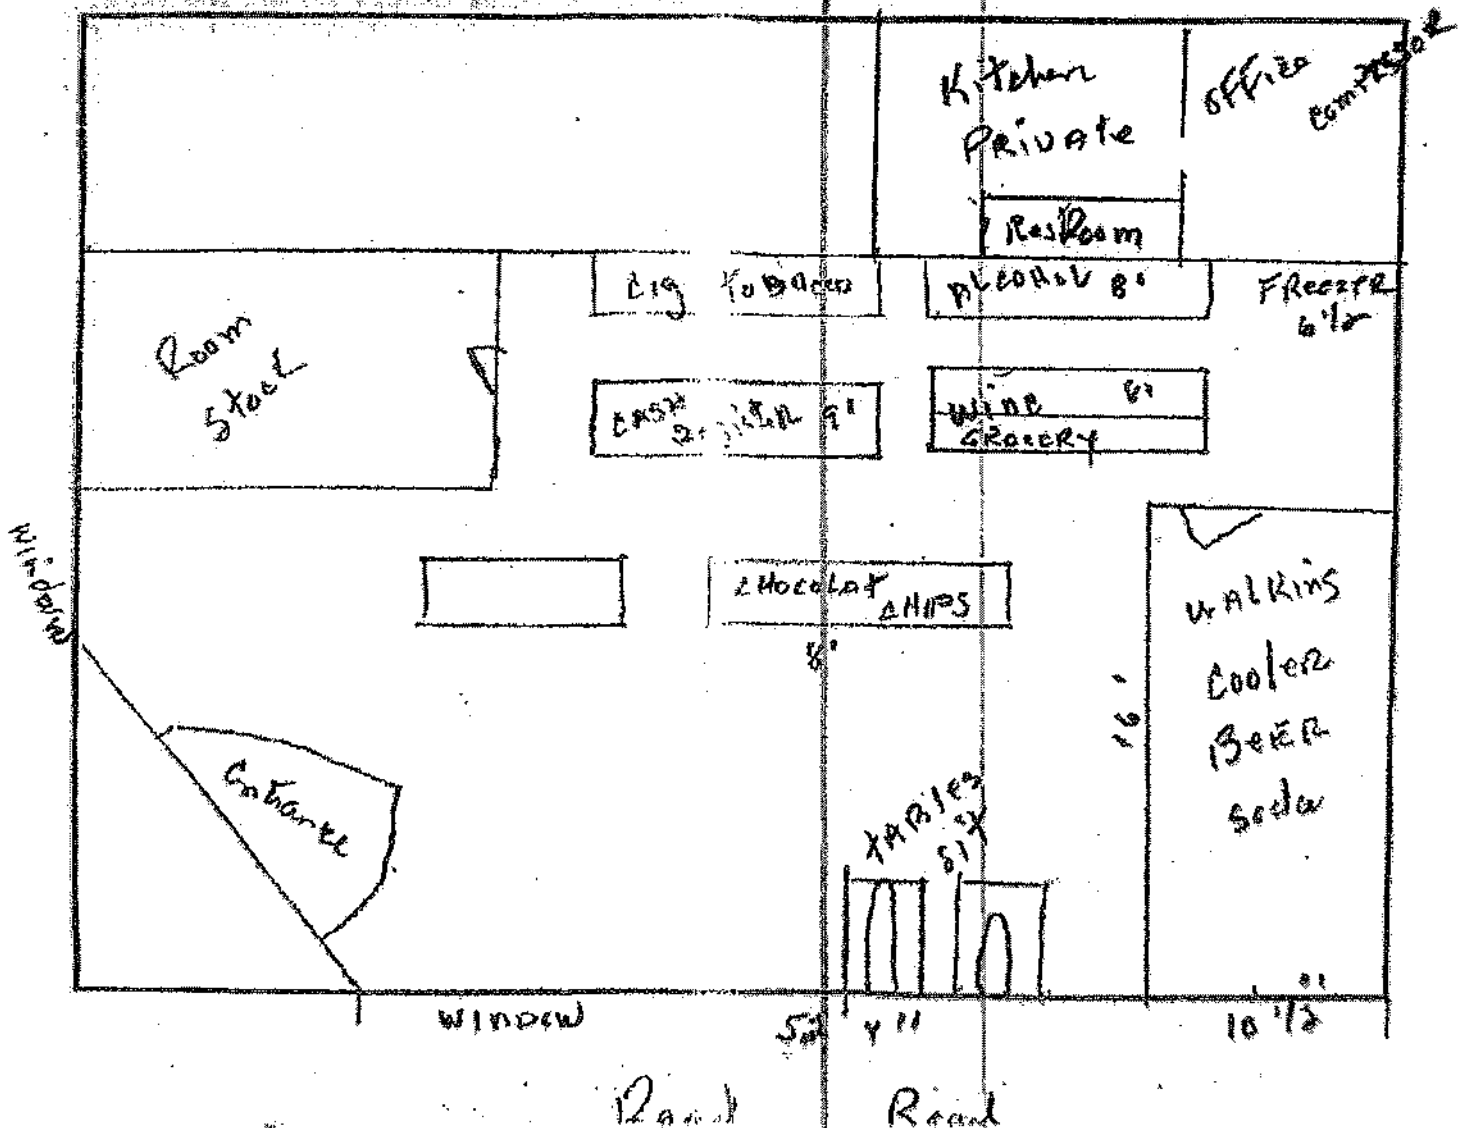 Kitchen
Private
office
compressor
RestRoom
Cig Tobacco
ALCOHOL 8'
FREEZER
6 1/2
Room
Stock
CASH
9'
Wine 8'
GROCERY
Window
CHOCOLAT
CHIPS
8'
WALKING
Cooler
BEER
Soda
16'
Entrance
TABLES
WINDOW
4"
10 1/2
Road